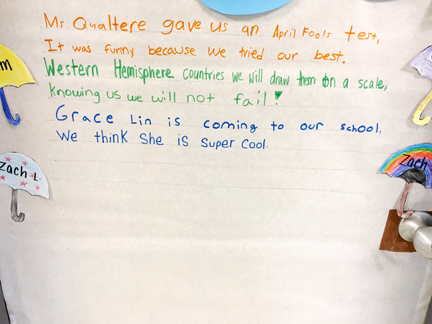 Mr. Qualtere gave us an April Fools test,
It was funny because we tried our best.
Western Hemisphere countries we will draw them on a scale,
knowing us we will not fail!
Grace Lin is coming to our school,
We think She is super cool.
m
Zach L.
Zach